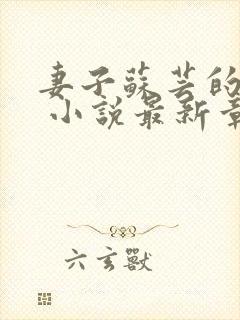 妻子蘇芸的
小說最新章
六玄獸